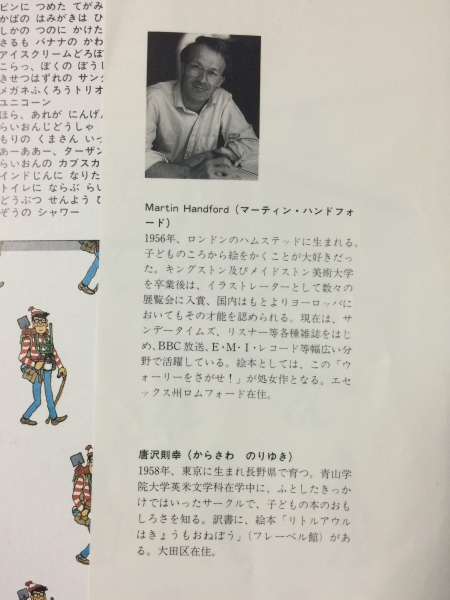 ピンに つめた てがみ
かばの はみがきは ひ
しかの つのに かけた
さるも バナナの かわ
アイスクリームどろぼ
こらっ、ぼくの ぼうし
きせつはずれの サンタ
メガネふくろうトリオ
ユニコーン
ほら、あれが にんげん
らいおんじどうしゃ
もりの くまさん いっ
あーああー、ターザン
らいおんの カプスカ
インドじんに なりた
トイレに ならぶ らい
どうぶつ せんよう ひ
ぞうの シャワー
Martin Handford（マーティン・ハンドフォ
ード）
1956年、ロンドンのハムステッドに生まれる。
子どものころから絵をかくことが大好きだっ
た。キングストン及びメイドストン美術大学
を卒業後は、イラストレーターとして数々の
展覧会に入賞、国内はもとよりヨーロッパに
おいてもその才能を認められる。現在は、サ
ンデータイムズ、リスナー等各種雑誌をはじ
め、BBC放送、E・M・I・レコード等幅広い分
野で活躍している。絵本としては、この「ウ
ォーリーをさがせ！」が処女作となる。エセ
ックス州ロムフォード在住。
唐沢則幸（からさわ のりゆき）
1958年、東京に生まれ長野県で育つ。青山学
院大学英米文学科在学中に、ふとしたきっか
けではいったサークルで、子どもの本のおも
しろさを知る。訳書に、絵本「リトルアウル
はきょうもおねぼう」（フレーベル館）があ
る。大田区在住。